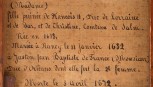 (Madame)
fille puînée de François II, Duc de Lorraine
et de Bar, et de Christine, Comtesse de Salm.
Née en 1615,
Mariée à Nancy le 31 janvier 1632
à Gaston Jean Baptiste de France (Monsieur)
Duc d'Orléans dont elle fut la 2e femme.
Morte le 3 Avril 1672